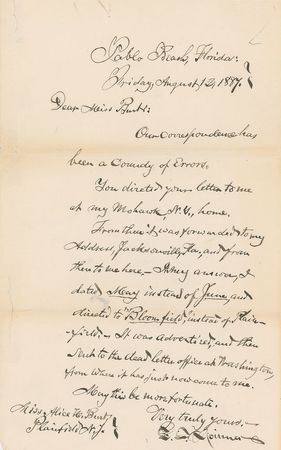 Pablo Beach, Florida:
Friday, August 12, 1887.
Dear Miss Burt:
Our correspondence has
been a Comedy of Errors.
You directed your letter to me
at my Mohawk, N.Y., home.
From there it was forwarded to my
Address, Jacksonville, Fla, and from
then to me here,— In my answer, I
dated May instead of June, and
directed to "Bloomfield", instead of Plain-
field;— It was advertised, and then
sent to the dead letter office at Washington,
from where it has just now come to me.
May this be more fortunate.
Very truly yours,—
Miss Alice W. Burt,
Plainfield N.J.